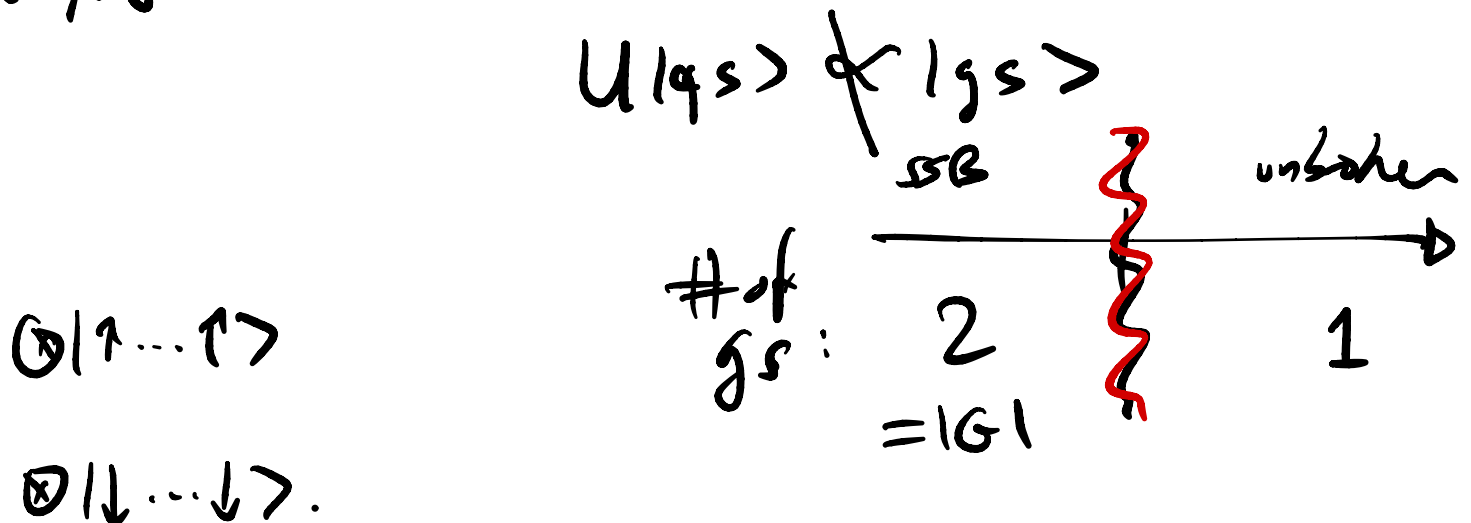 U|gs> ∝̸ |gs>
SSB unbroken
# of
gs: 2 1
⊗|↑...↑>
=|G|
⊗|↓...↓>.